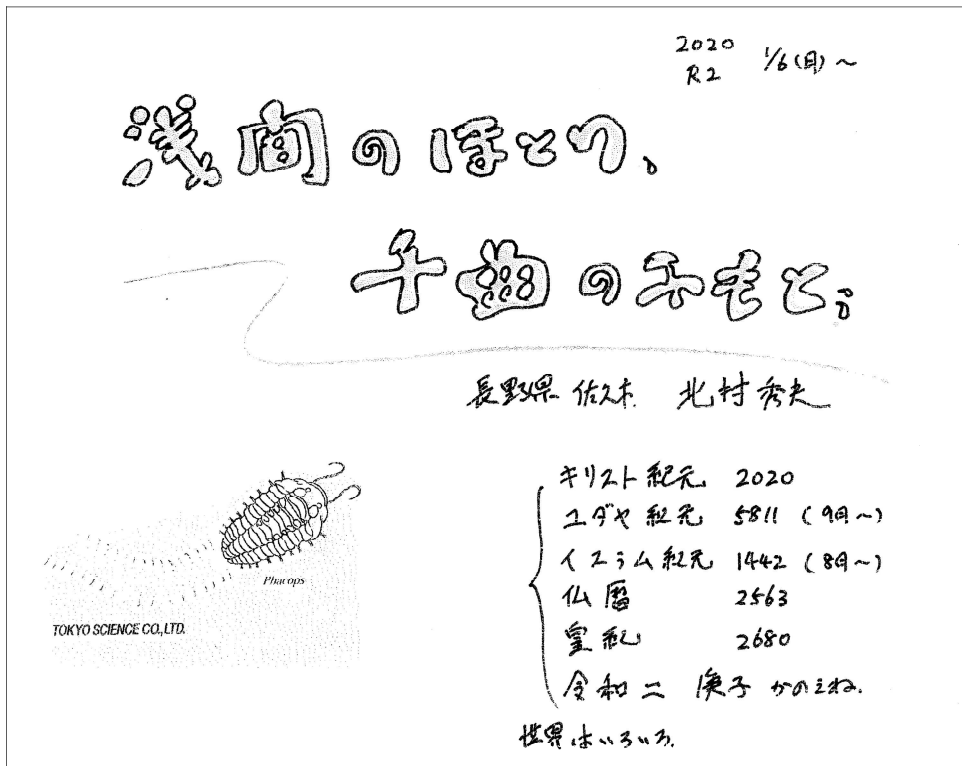 2020
R2 1/6(月)~
浅間のほとり、
千曲のふもと。
長野県 佐久市 北村秀夫
Phacops
TOKYO SCIENCE CO.,LTD.
キリスト紀元 2020
ユダヤ紀元 5811 (9月~)
イスラム紀元 1442 (8月~)
仏暦 2563
皇紀 2680
令和二 庚子 かのえね.
世界はいろいろ.